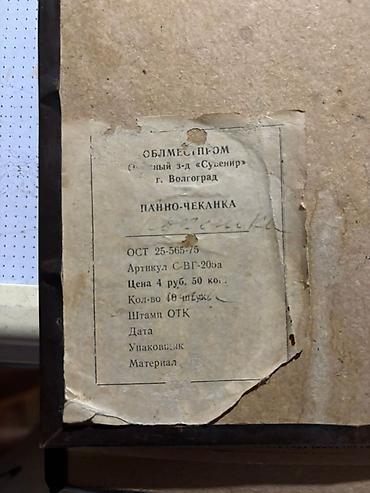 ОБЛМЕСТПРОМ
з-д «Сувенир»
г. Волгоград
ПАННО-ЧЕКАНКА
ОСТ 25-565-75
Артикул С-ВГ-205а
Цена 4 руб. 50 коп.
Кол-во 10 штука
Штамп ОТК
Дата
Упаковщик
Материал